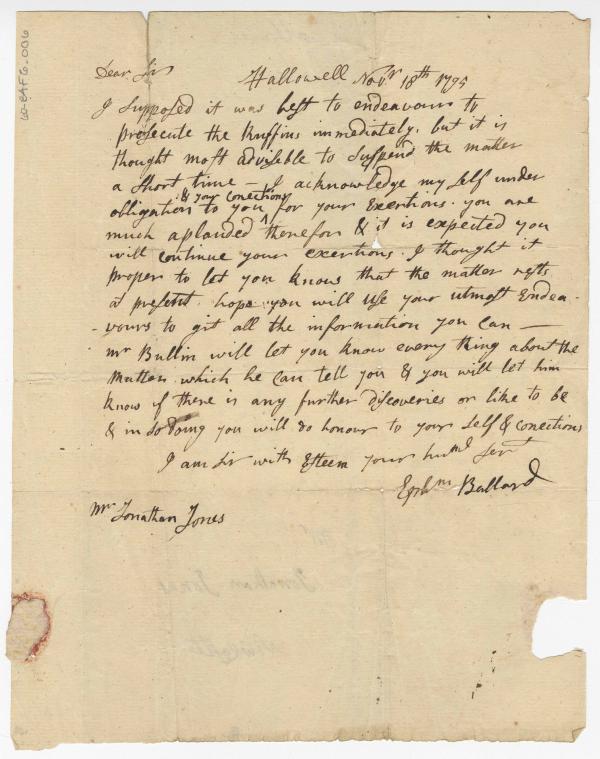 Dear Sir Hallowell Novr 18th 1795
I Supposed it was best to endeavours to
prosecute the Ruffins immediately. but it is
thought most advisable to Suspend the matter
a Short time – I acknowledge my Self under
& your Conections
obligation to you ^ for your Exertions. you are
much aplauded therefor & it is expected you
will continue your exertions. I thought it
proper to let you know that the matter rests
at present. hope you will Use your utmost Endea-
-vours to git all the information you can –
mr Bullin will let you know every thing about the
matter which he can tell you & you will let him
know if there is any further discoveries or like to be
& in So doing you will do honour to your Self & conections
I am Sir with Esteem your huml Servt
Ephm Ballard
Mr Jonathan Jones